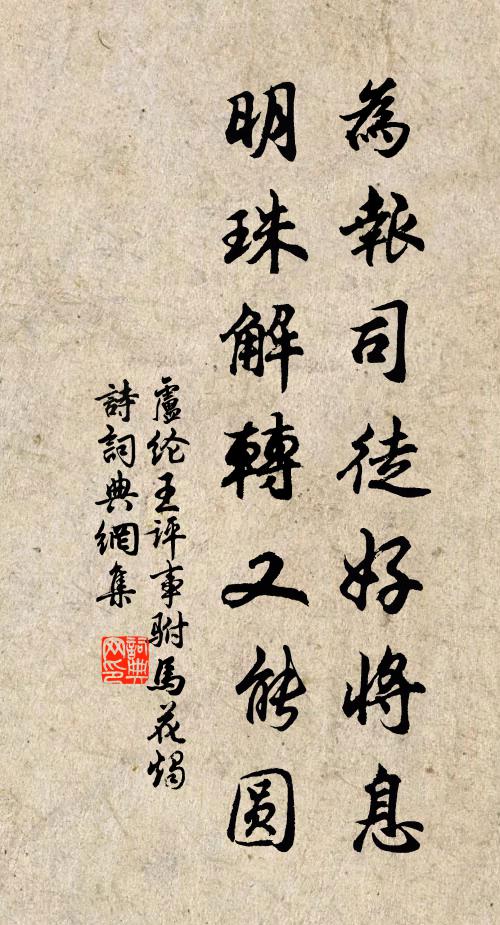 為報司徒好將息
明珠解轉又能圆
盧纶王评事駙馬花燭
詩詞典網集
詞典网印